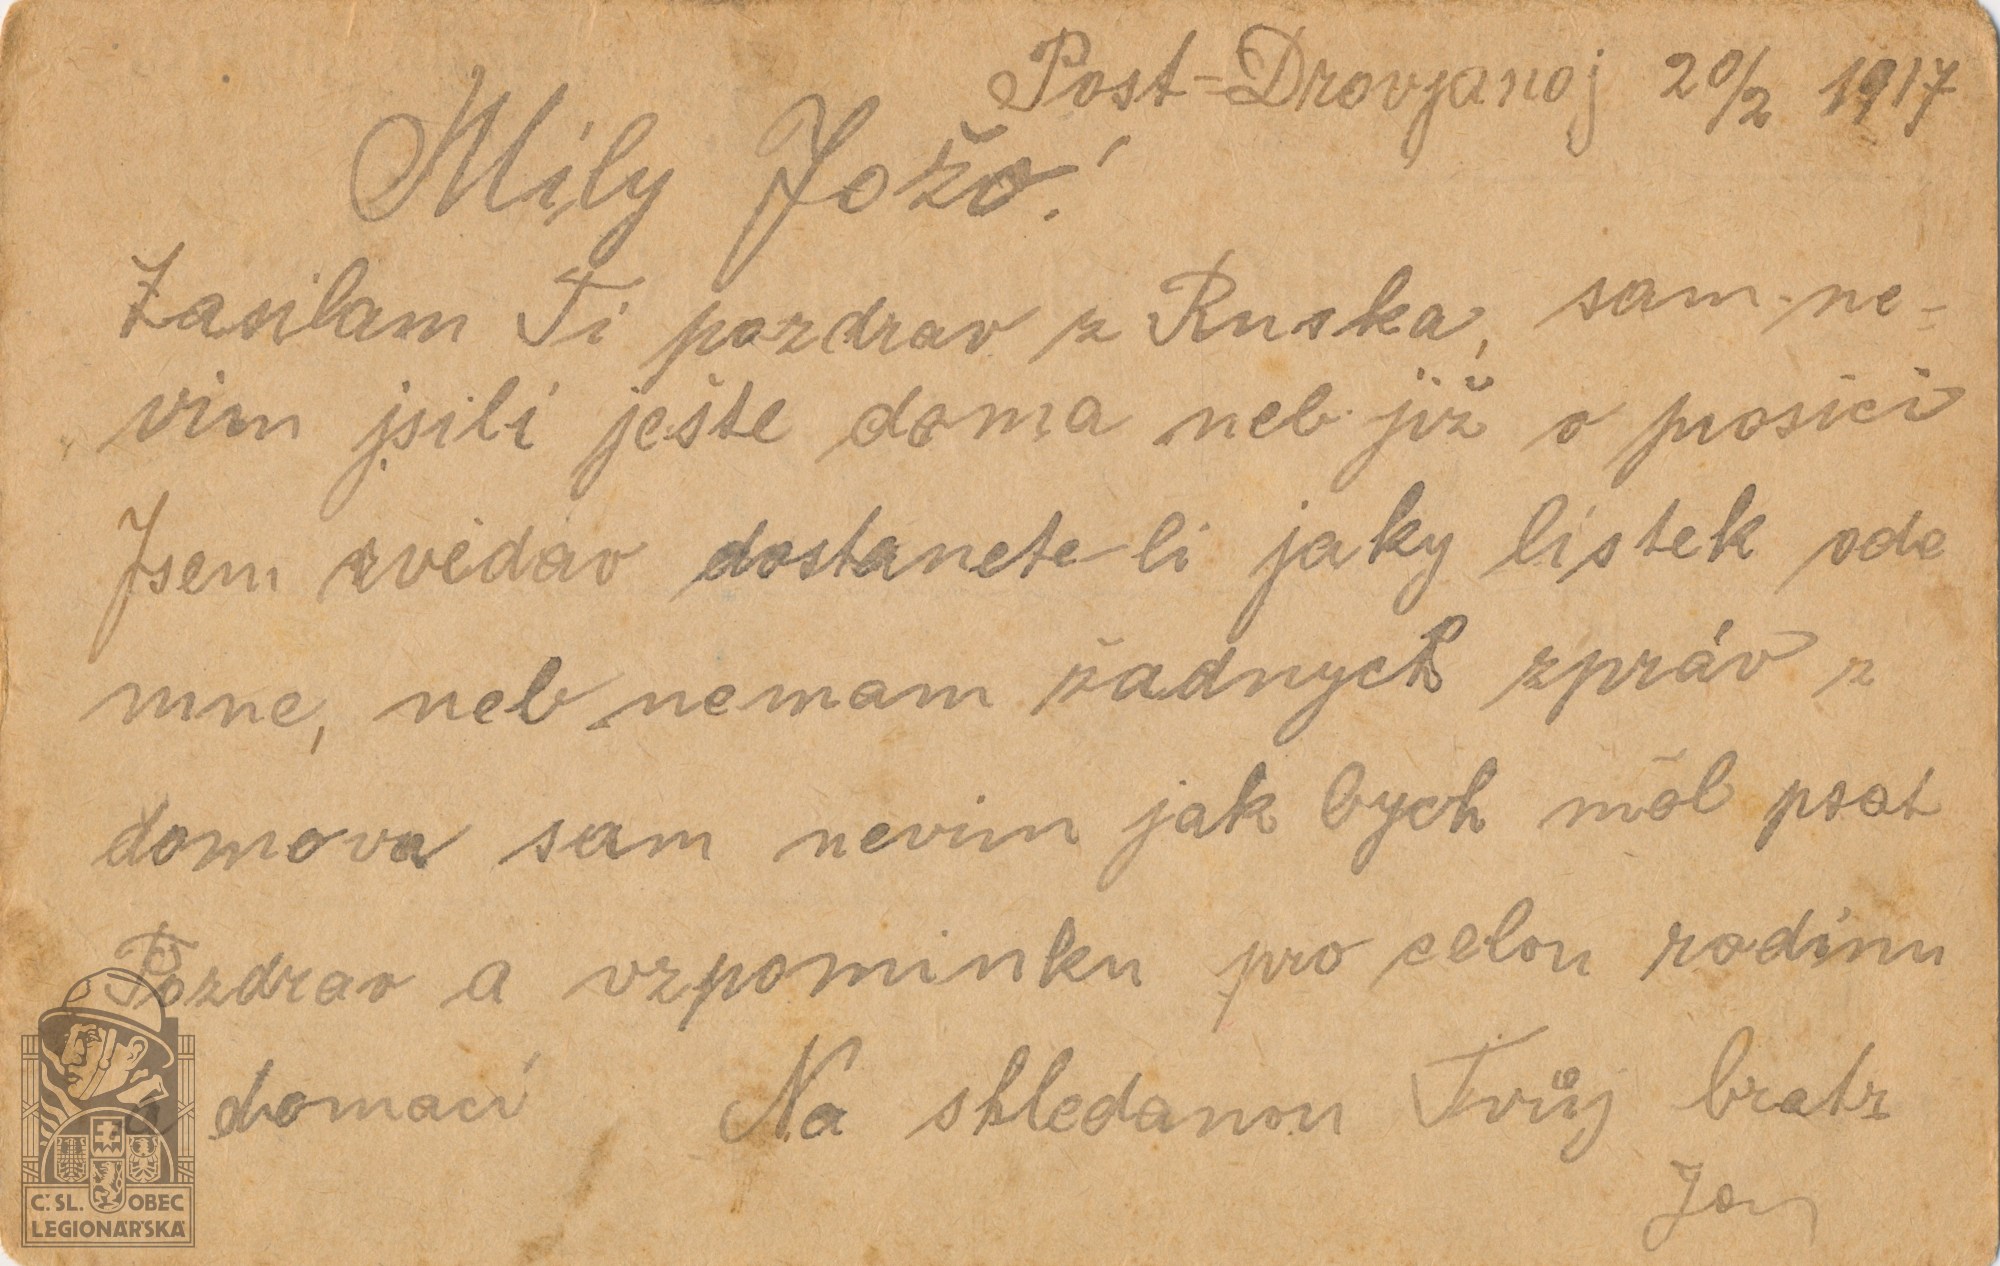 Post-Drovjanoj 20/2 1917
Mily Jožo!
Zasilam Ti pozdrav z Ruska, sam ne-
vim jsili ješte doma neb již o posici
Jsem zvědav dostanete-li jaky listek ode
mne, neb nemam žadnych zpráv z
domova sam nevim jak bych měl psat
Pozdrav a vzpominku pro celou rodinu
a domací Na shledanou Tvůj bratr
Jan
Č.SL. OBEC
LEGIONÁŘSKÁ